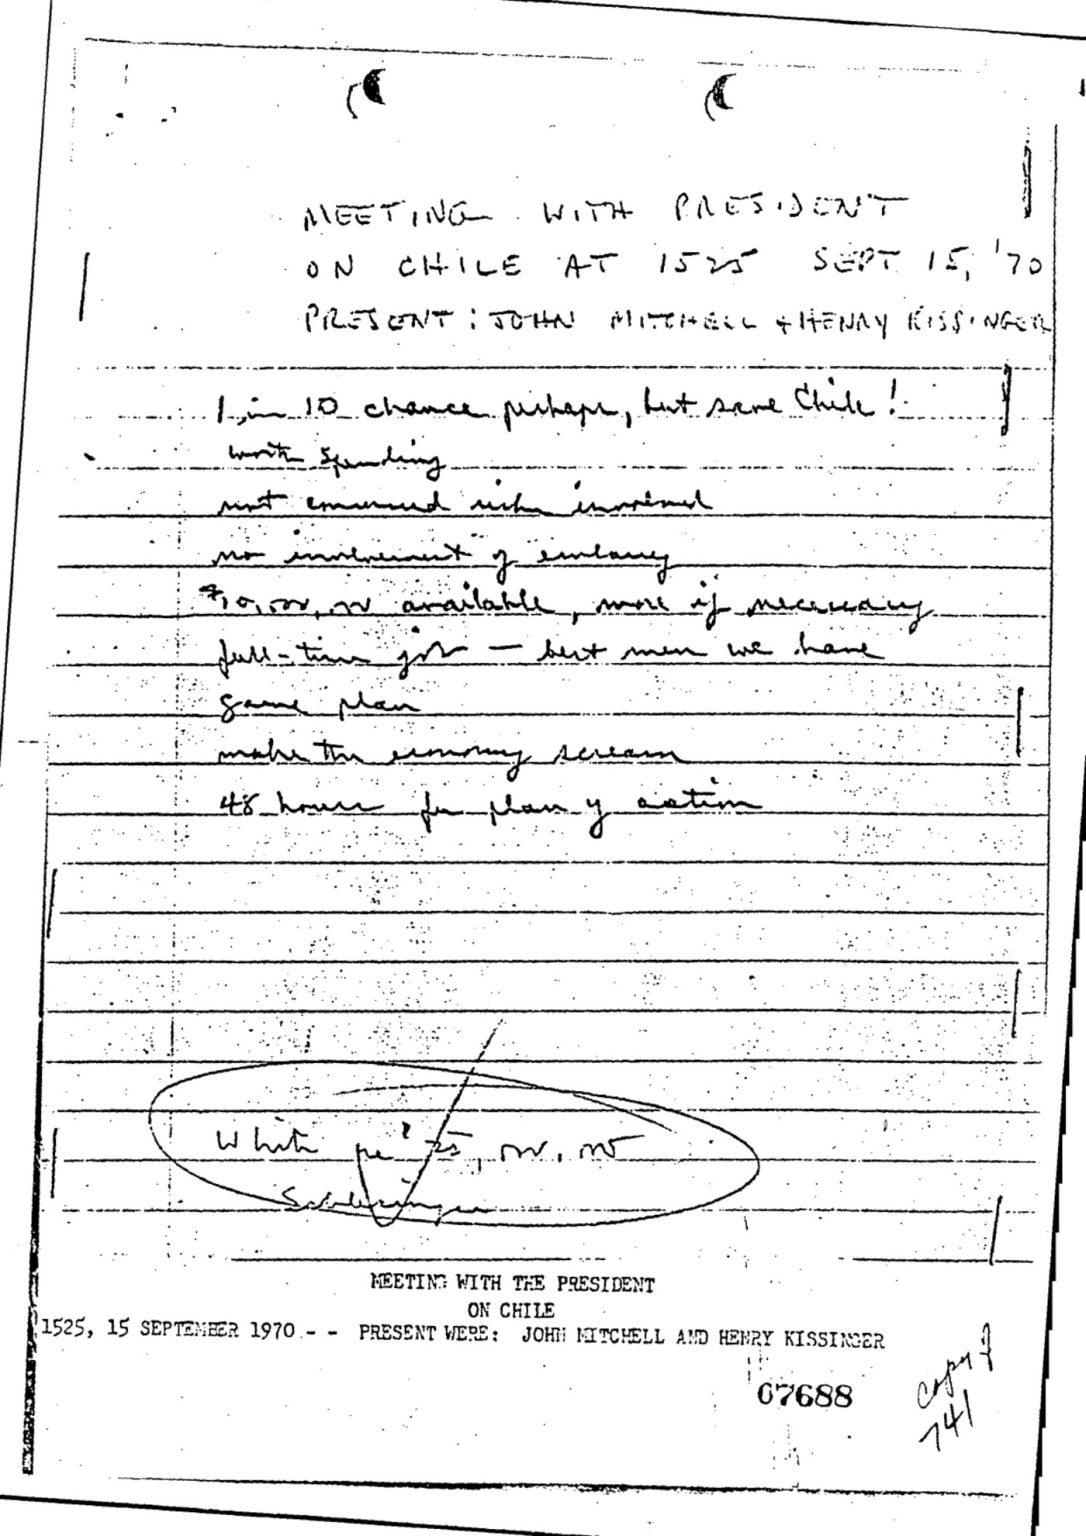 MEETING WITH PRESIDENT
ON CHILE AT 1525 SEPT 15, '70
PRESENT: JOHN MITCHELL + HENRY KISSINGER
1 in 10 chance perhaps, but save Chile!
worth spending
not concerned risks involved
no involvement of embassy
$10,000,00 available, more if necessary
full-time job — best men we have
game plan
make the economy scream
48 hours for plan of action
White
25,000,000
Schlesinger
MEETING WITH THE PRESIDENT
ON CHILE
1525, 15 SEPTEMBER 1970 - - PRESENT WERE: JOHN MITCHELL AND HENRY KISSINGER
07688
copy 7
741